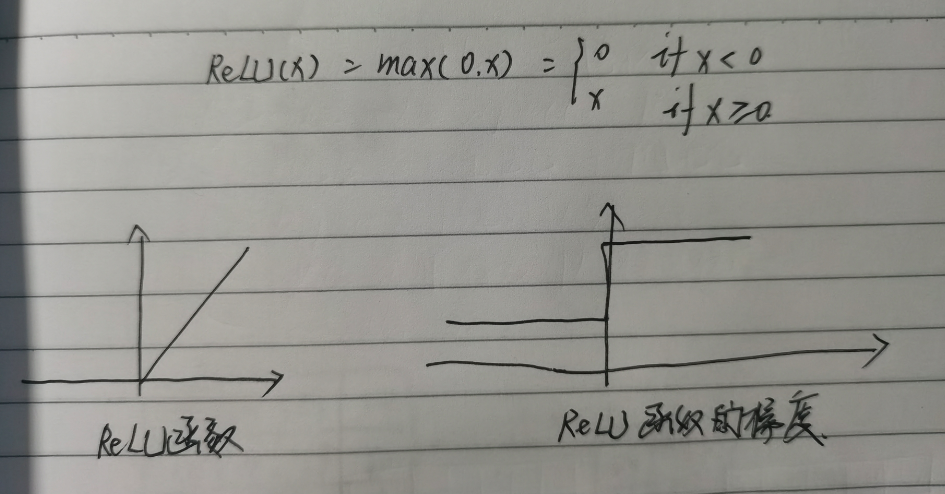 ReLU(x) = max(0,x) = { 0 if x < 0
x if x ≥ 0
ReLU函数
ReLU函数的梯度